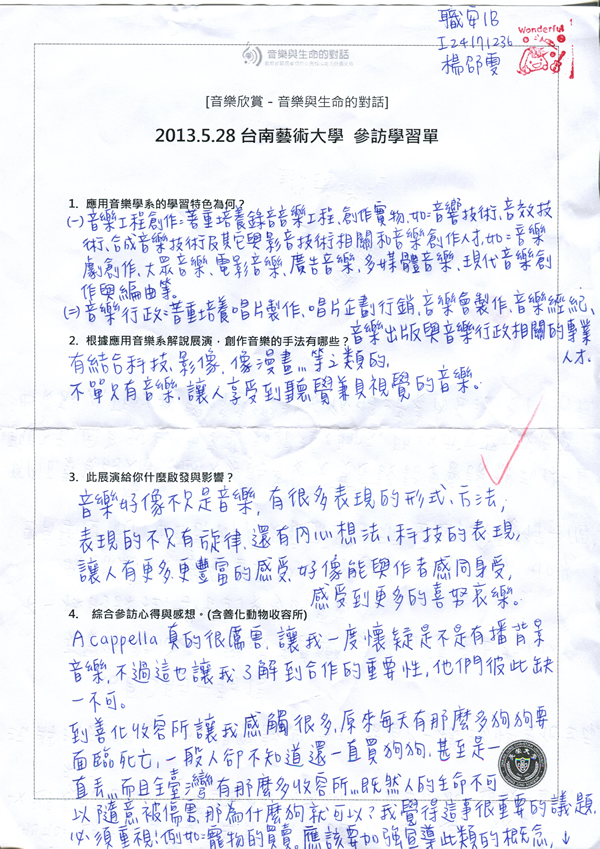 職安1B
I24171236
楊邵雯
Wonderful
音樂與生命的對話
[音樂欣賞 - 音樂與生命的對話]
2013.5.28 台南藝術大學 參訪學習單
1. 應用音樂學系的學習特色為何?
(一)音樂工程創作:著重培養錄音音樂工程、創作實物,如:音響技術,音效技
術,合成音樂技術及其它與影音技術相關和音樂創作人才,如:音樂
劇創作,大眾音樂,電影音樂,廣告音樂,多媒體音樂、現代音樂創
作與編曲等。
(二)音樂行政:著重培養唱片製作、唱片企劃行銷,音樂會製作,音樂經紀、
音樂出版與音樂行政相關的專業
人才.
2. 根據應用音樂系解說展演,創作音樂的手法有哪些?
有結合科技,影像,像漫畫...等之類的,
不單只有音樂,讓人享受到聽覺兼具視覺的音樂。
3. 此展演給你什麼啟發與影響?
音樂好像不只是音樂,有很多表現的形式、方法,
表現的不只有旋律,還有內心想法、科技的表現,
讓人有更多、更豐富的感受,好像能與作者感同身受,
感受到更多的喜努哀樂。
4. 綜合參訪心得與感想。(含善化動物收容所)
A cappella 真的很厲害,讓我一度懷疑是不是有播背景
音樂,不過這也讓我了解到合作的重要性,他們彼此缺
一不可。
到善化收容所讓我感觸很多,原來每天有那麼多狗狗要
面臨死亡,一般人卻不知道還一直買狗狗,甚至是一
直丟...而且全臺灣有那麼多收容所...既然人的生命不可
以隨意被傷害,那為什麼狗就可以?我覺得這事很重要的議題
必須重視!例如:寵物的買賣。應該要加強宣導此類的概念,↓